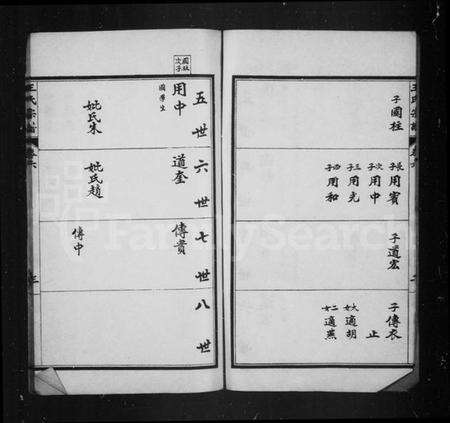 子國柱
長子用賓
次子用中
三子用光
四子用和
子道宏
子傳衣
止
長女適胡
二女適燕
國柱次子
五世
六世
七世
八世
用中
國學生
妣氏朱
道奎
妣氏趙
傳貴
傳中
王氏宗譜
FamilySearch